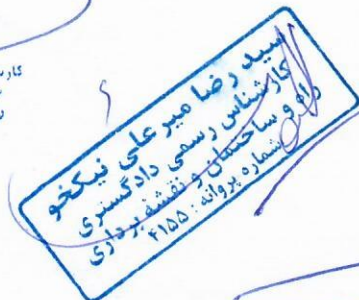 سید رضا میر علی نیکخو
کارشناس رسمی دادگستری
راه و ساختمان و نقشه برداری
شماره پروانه : ۴۱۵۵